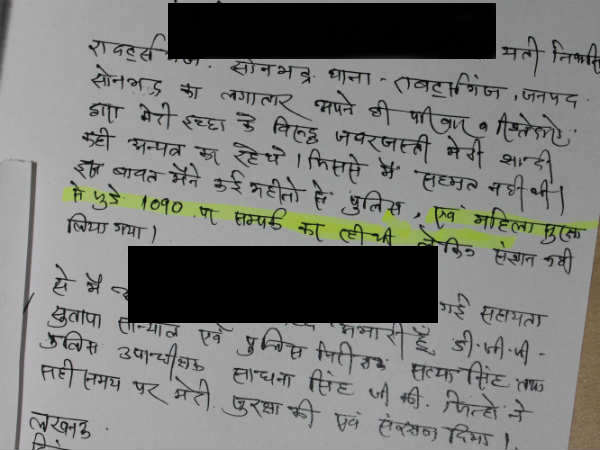 मती निवासी
राबर्ट्सगंज. सोनभद्र थाना - राबर्ट्सगंज, जनपद
सोनभद्र का लगातार अपने ही परिवार व रिश्तेदारो
द्वारा मेरी इच्छा के विरुद्ध जबरजस्ती मेरी शादी
कही अन्यत्र कर रहे थे। जिससे मै सहमत नही थी।
इस बावत मैने कई महीनो से पुलिस, एवं महिला सुरक्षा
मे जुडे 1090 पर सम्पर्क कर रही थी लेकिन संज्ञान नही
लिया गया।
गई सहायता
से मै आभारी हूँ डी.जी.पी.
सुतापा सान्याल एवं पुलिस निरीक्षक सत्या सिंह तथा
पुलिस उपाधीक्षक साधना सिंह जी की. जिन्हो ने
सही समय पर मेरी सुरक्षा की एवं संरक्षण दिया।
लखनऊ